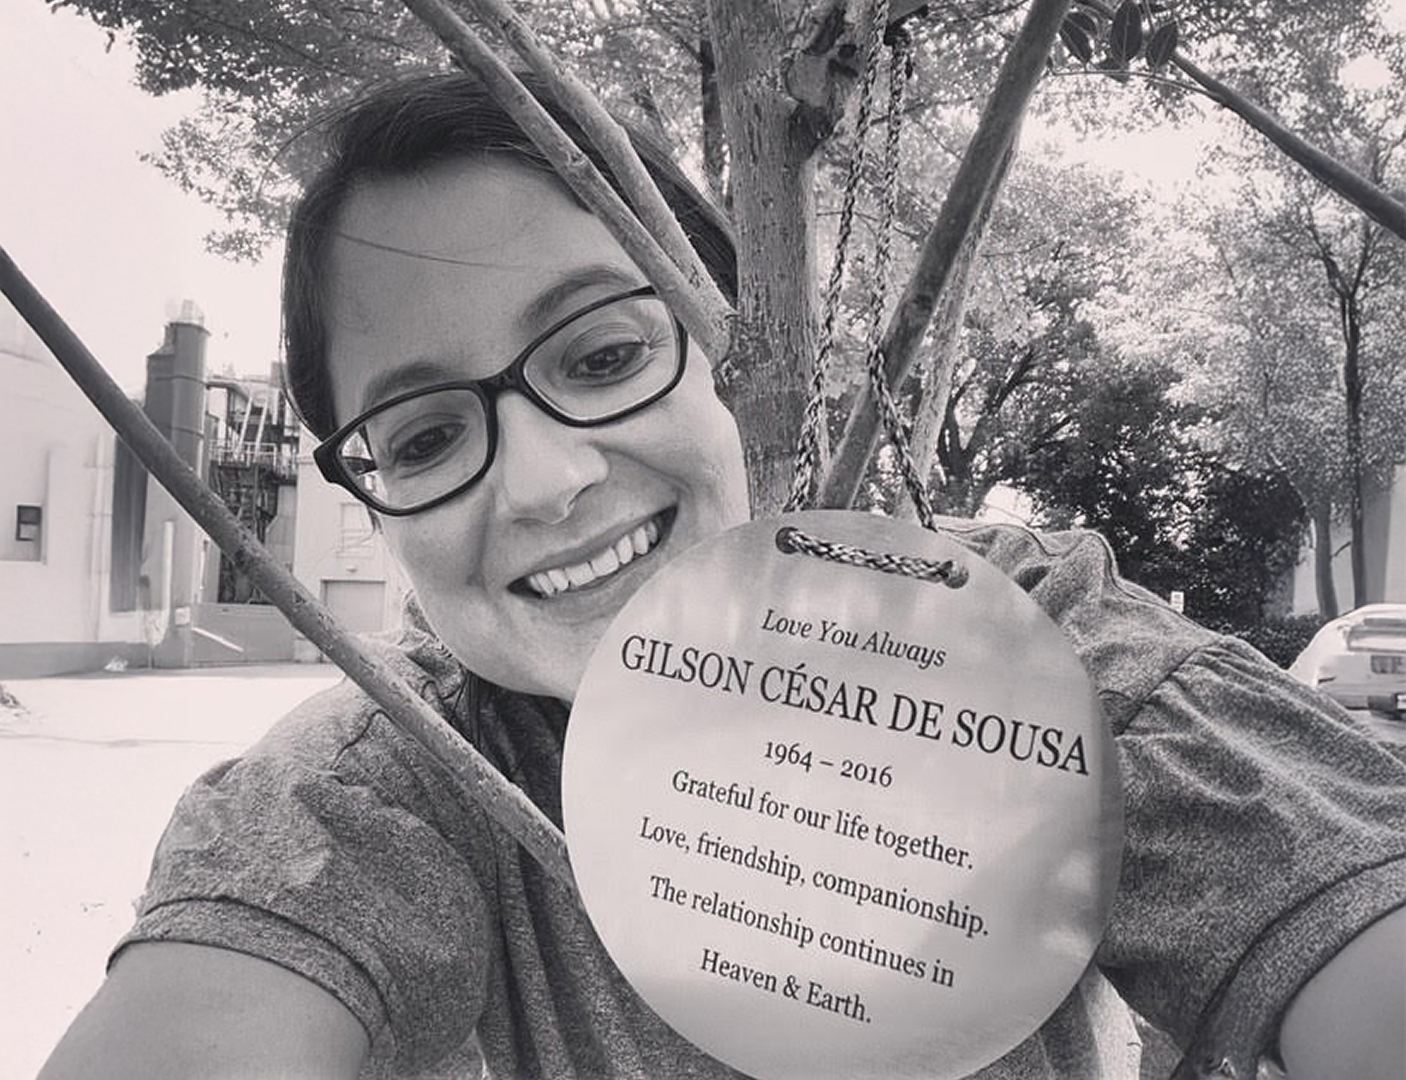 Love You Always
GILSON CÉSAR DE SOUSA
1964 – 2016
Grateful for our life together.
Love, friendship, companionship.
The relationship continues in
Heaven & Earth.